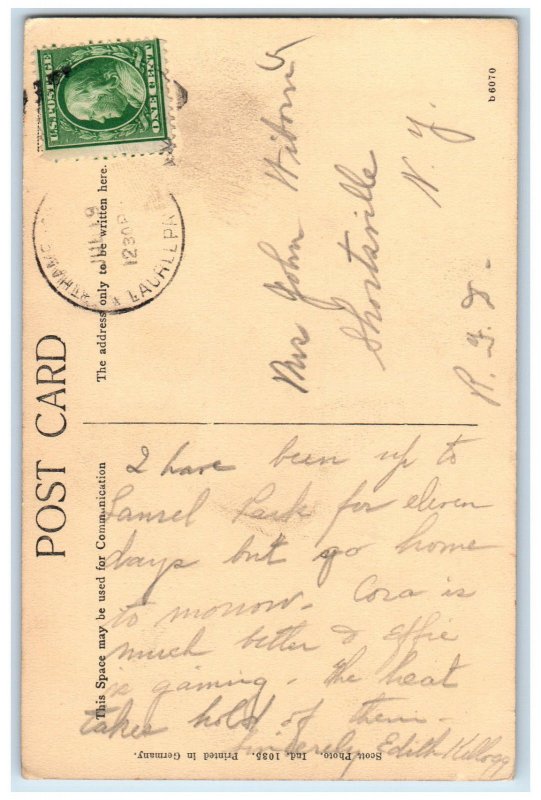 POST CARD
This Space may be used for Communication
The address only to be written here.
U.S. POSTAGE
ONE CENT
JUL 19
1230P
LAUREL PA
b6070
Mrs John Wiborn
Shortsville
N. Y.
R. F. D.
I have been up to
Laurel Park for eleven
days but go home
to morrow. Cora is
much better & Effie
is gaining. The heat
takes hold of them.
Sincerely Edith Kellogg
Scott Photo, Ind. 1085. Printed in Germany.